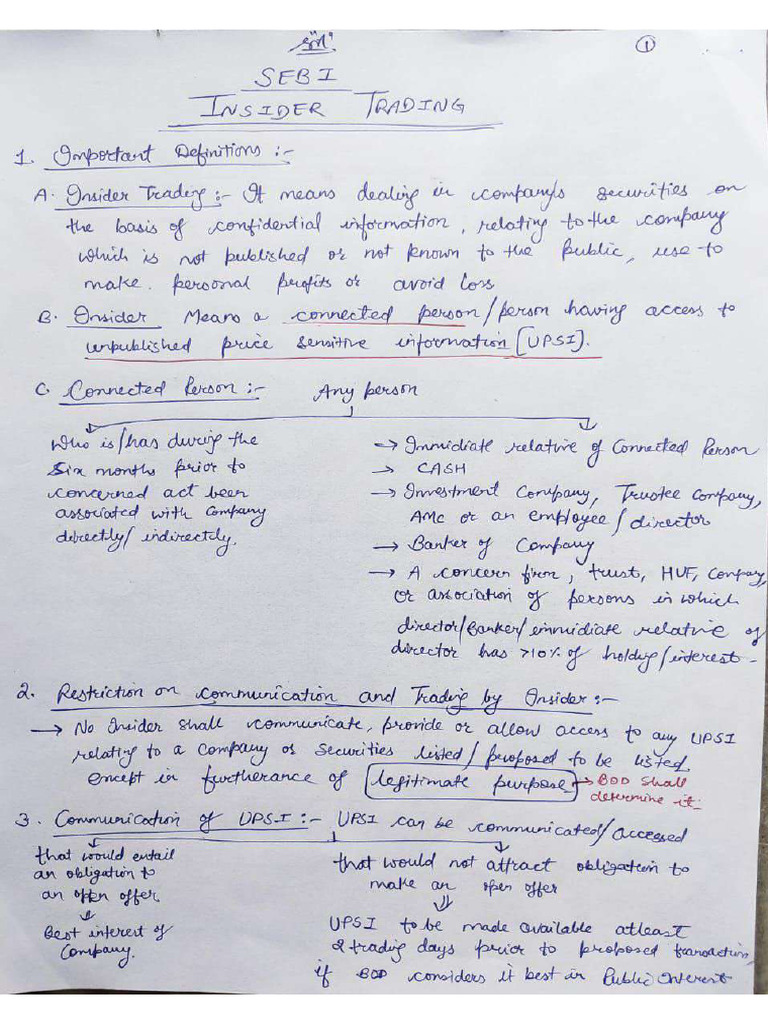 ①
SEBI
INSIDER TRADING
1. Important Definitions :-
A. Insider Trading :- It means dealing in company's securities on
the basis of confidential information, relating to the company
which is not published or not known to the public, use to
make personal profits or avoid loss
B. Insider Means a connected person/person having access to
unpublished price sensitive information [UPSI].
C. Connected Person :- Any person
Who is/has during the
Six months prior to
concerned act been
associated with company
directly/indirectly.
→ Immidiate relative of Connected Person
→ CASH
→ Investment Company, Trustee Company,
AMC or an employee/director
→ Banker of Company
→ A concern firm, trust, HUF, Company,
or association of persons in which
director/Banker/immidiate relative of
director has >10% of holding/interest.
2. Restriction on communication and Trading by Insider :-
→ No Insider shall communicate, provide or allow access to any UPSI
relating to a company or securities listed/proposed to be listed
except in furtherance of legitimate purpose → BOD shall
determine it.
3. Communication of UPSI :- UPSI can be communicated/accessed
that would entail
an obligation to
an open offer
↓
Best interest of
Company.
that would not attract obligation to
make an open offer
⇓
UPSI to be made available atleast
2 trading days prior to proposed transaction,
if BOD considers it best in Public Interest